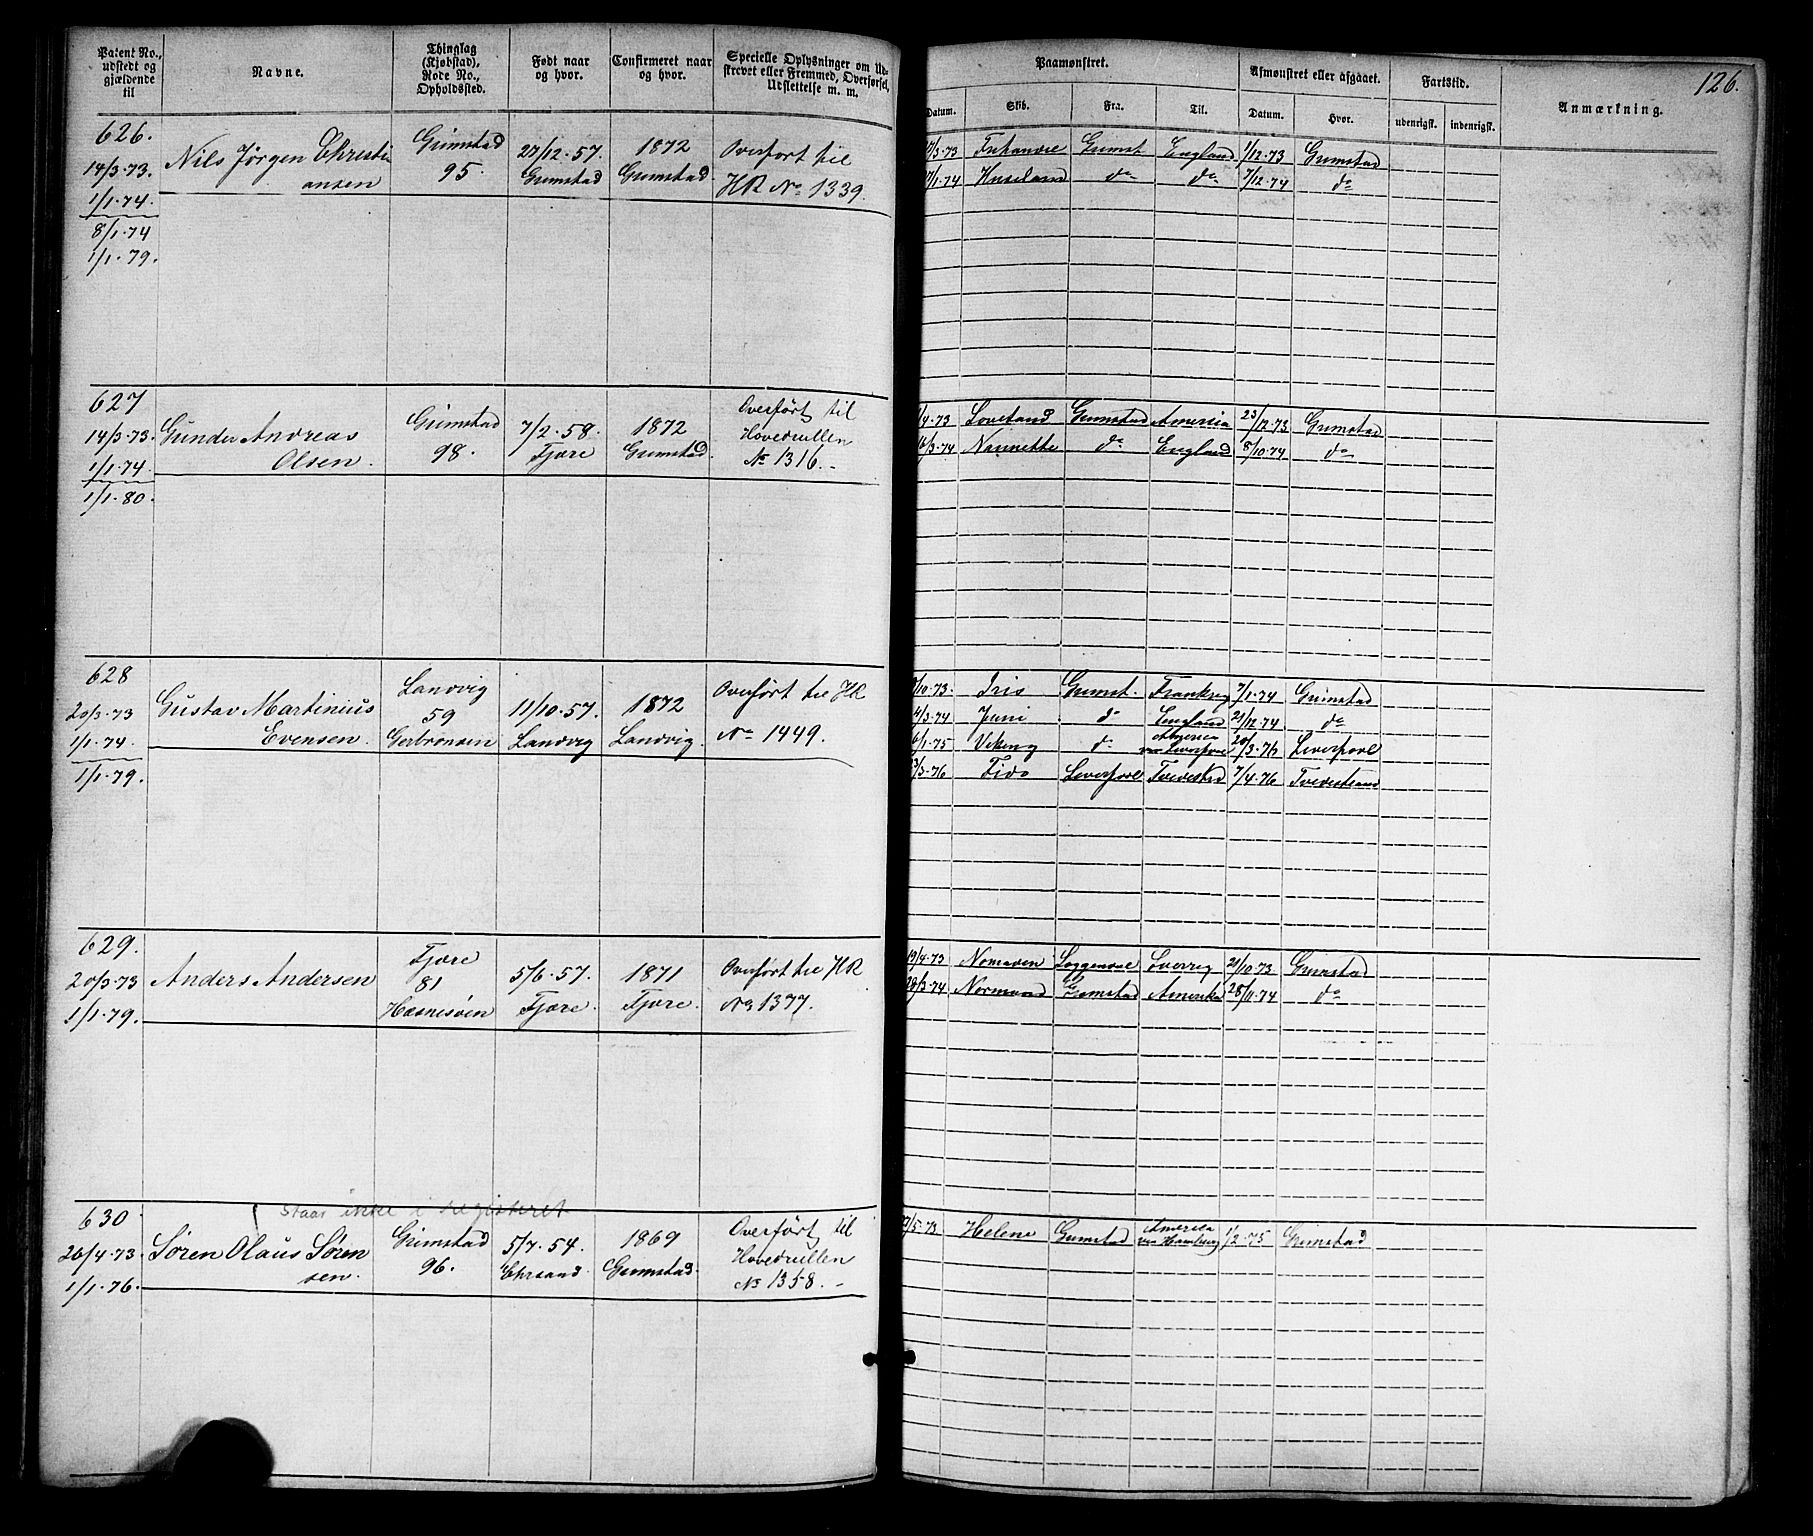 Patent No., udstedt og gjældende til
Navne.
Thinglag (Kjøbstad), Rode No., Opholdssted.
Født naar og hvor.
Confirmeret naar og hvor.
Specielle Oplysninger om Udskrevet eller Fremmed, Overførsel, Udslettelse m. m.
Paamønstret.
Datum.
Skib.
Fra.
Til.
Afmønstret eller afgaaet.
Datum.
Hvor.
Fartstid.
udenrigsk.
indenrigsk.
Anmærkning.
126.
626.
14/3.73.
1/1.74.
8/1.74
1/1.79.
Nils Jørgen Christi
ansen
Grimstad
95.
27/12.57.
Grimstad
1872
Grimstad
Overført til
HR No 1339.
/3.73 Grimst England 1/12.73 Grimstad
/1.74 Huseland do do 7/12.74 do
627
14/3.73
1/1.74
1/1.80.
Gunder Andreas
Olsen.
Grimstad
98.
7/2.58.
Fjære
1872
Grimstad.
Overført til
Hovedrullen
No 1316.-
/4.73 Lovetand Grimstad America 23/12.73 Grimstad
6/3.74 Nannette do England 8/10.74 do
628
20/3.73
1/1.74.
1/1.79.
Gustav Martinius
Evensen.
Landvig
59
Gerbronsen
11/10.57.
Landvig
1872
Landvig.
Overført til HR
No 1449.
/10.73. Iris Grimst. Frankrig 7/1.74 Grimstad
4/3.74 Juni do England 21/12.74 do
6/1.75 Viking do America via Liverpool 20/3.76 Liverpool
3/3.76 Fido Liverpool Tvedestrd 7/4.76 Tvedestrand
629.
20/3.73
1/1.79.
Anders Andersen
Fjære
81
Hasnesøen
5/6.57.
Fjære.
1871
Fjære.
Overført til HR
No 1377.
19/4.73 Nomaden Loggenvee Sverrig 21/10.73 Grimstad
28/3.74 Normand Grimstad Amerika 28/11.74 do
Staar ikke i registeret
630.
26/4.73
1/1.76.
Søren Olaus Søren
sen.
Grimstad
96.
5/7.54.
Chrsand.
1869
Grimstad.
Overført til
Hovedrullen
No 1358.-
/5.73 Helene Grimstad America via Hamburg 1/2.75 Grimstad